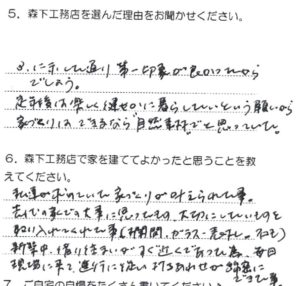 5．森下工務店を選んだ理由をお聞かせください。
3.に示した通り 第一印象が良かったから
でしょう。
定年後は楽しく健やかに暮らしたいという願いから
家づくりは できるなら"自然素材"でと思っていた。
6．森下工務店で家を建ててよかったと思うことを教
えてください。
私達が求めていた家づくりが叶えられた事。
大事に思ってたもの、大切にしていたものを
取り入れてくれた事
新築中、仮り住まいがすぐ近くであった為、毎日
現場に来て 進行に 打ちあわせが
できた事